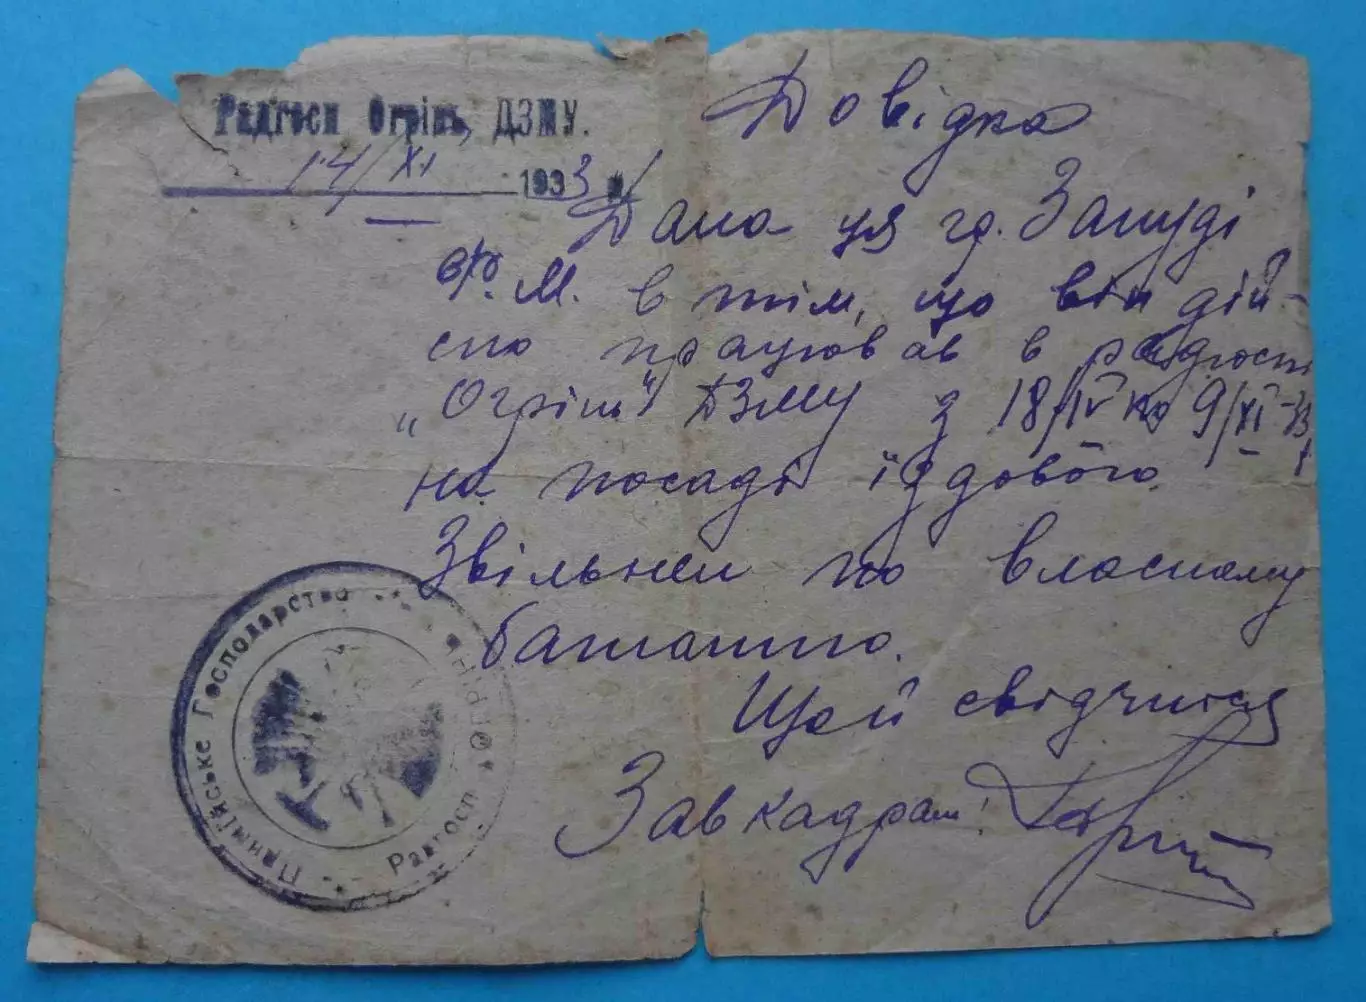 Радгосп Огрінь, ДЗМУ.
14/XI 1933 р.
Довідка
Дана ця гр. Запуді
Ф. М. в тім, що він дій-
сно працював в радгоспі
„Огрінь" ДЗМУ з 18/IV по 9/XI-33
на посаді їздового.
Звільнен по власному
бажанню.
Що й свідчиться
Завкадрам:
Підміське Господарство
Радгосп Огрінь